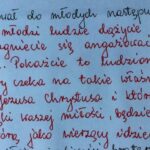 wał do młodych następu
młodzi ludzie dążycie
agniecie się angażować
Pokażcie to ludziom
y czeka na takie własn
Jezusa Chrystusa i któr
ki waszej miłości, będzie
órą, jako wierzący idzie